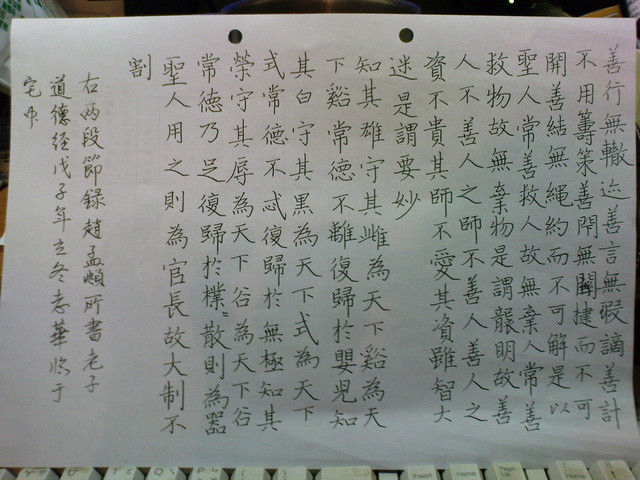 善行無轍迹善言無瑕謫善計
不用籌策善閇無關揵而不可
開善結無繩約而不可解是以
聖人常善救人故無棄人常善
救物故無棄物是謂襲明故善
人不善人之師不善人善人之
資不貴其師不愛其資雖智大
迷是謂要妙
知其雄守其雌為天下谿為天
下谿常德不離復歸於嬰兒知
其白守其黑為天下式為天下
式常德不忒復歸於無極知其
榮守其辱為天下谷為天下谷
常德乃足復歸於樸〻散則為器
聖人用之則為官長故大制不
割
右两段節錄趙孟頫所書老子
道德经戊子年立冬志華临于
宅中
Insert
Home
Page Up
Home